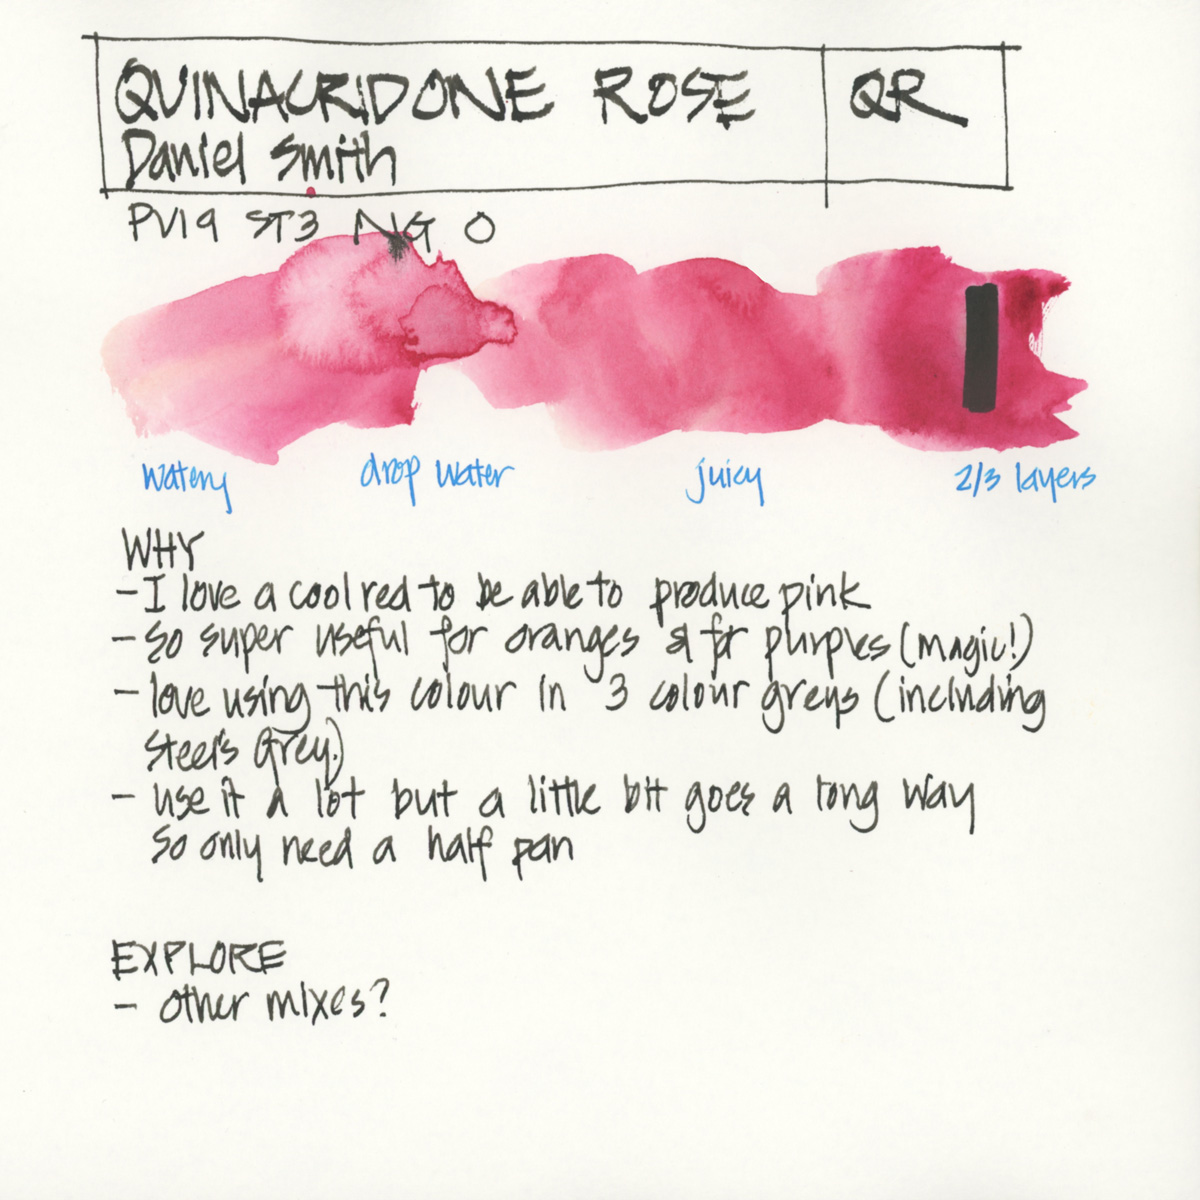 QUINACRIDONE ROSE QR
Daniel Smith
PV19 ST3 NG O
watery drop water juicy 2/3 layers
WHY
- I love a cool red to be able to produce pink
- so super useful for oranges & for purples (magic!)
- love using this colour in 3 colour greys (including
Steel's Grey)
- use it a lot but a little bit goes a long way
so only need a half pan
EXPLORE
- other mixes?